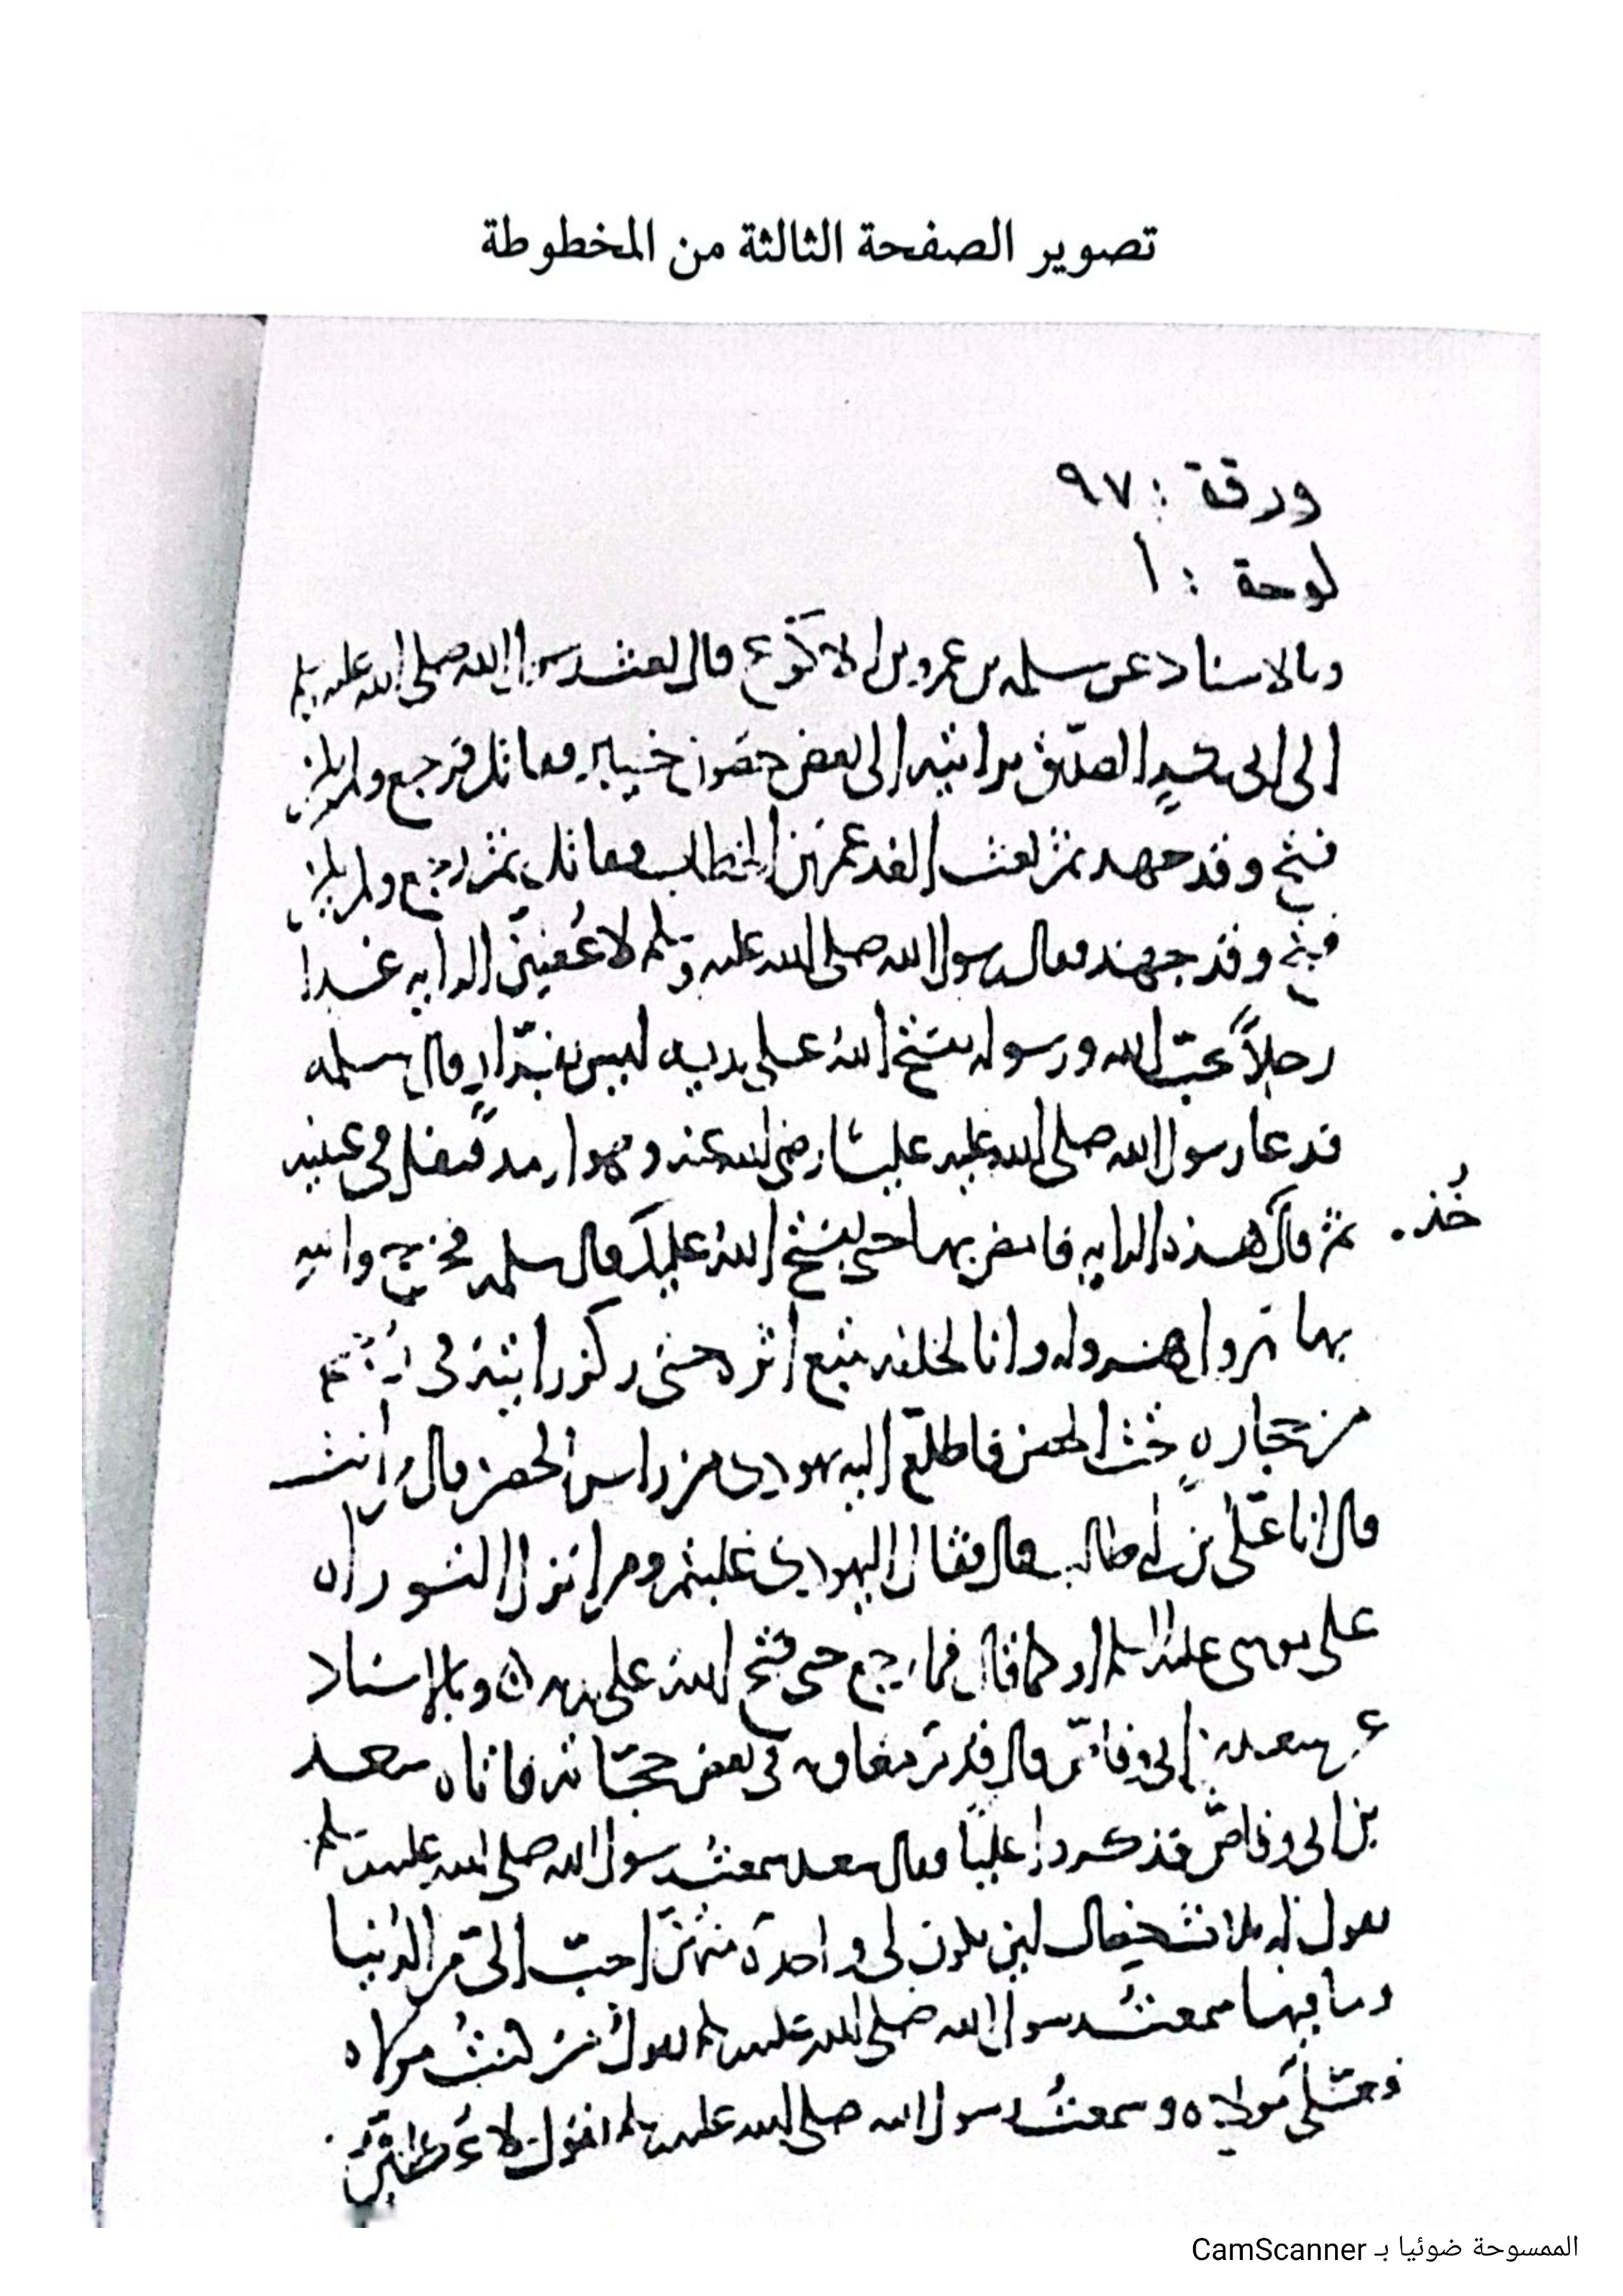 تصوير الصفحة الثالثة من المخطوطة
ورقة : ٩٧
لوحة : أ
وبالاسناد عن سلمه بن عمرو بن الاكوع قال بعث رسول الله صلى الله عليه وسلم
الى ابى بكر الصديق برايته الى بعض حصون خيبر فقاتل فرجع ولم يكن
فتح وقد جهد ثم بعث الغد عمر بن الخطاب فقاتل ثم رجع ولم يكن
فتح وقد جهد فقال رسول الله صلى الله عليه وسلم لاعطين الرايه غدا
رجلاً يحب الله ورسوله يفتح الله على يديه ليس بفرّار قال سلمه
فدعا رسول الله صلى الله عليه عليّا رضى الله عنه وهو ارمد فتفل فى عينيه
ثم قال هذه الرايه فامض بها حتى يفتح الله عليك قال سلمه فخرج والله
خُذ .
بها يهرول هروله وانا لخلفه نتبع اثره حتى ركز رايته فى
من حجارهٍ تحت الحصن فاطلع اليه يهودى من راس الحصن قال من انت
قال انا على بن ابى طالب قال فقال اليهودى غلبتم وما انزل التوراه
على موسى عليه السلم او كما قال فما رجع حتى فتح الله على يديه ه وبالإسناد
عن سعد بن ابى وقاص قال قدم معاويه فى بعض حجّاته فاتاه سعد
بن ابى وقاص فذكروا عليّا فقال سعد سمعت رسول الله صلى الله عليه وسلم
يقول له ثلاث خصال لين يكون لى واحدة منهنّ احبّ الىّ من الدنيا
وما فيها سمعت رسول الله صلى الله عليه وسلم يقول من كنت مولاه
فعلى مولاه وسمعت رسول الله صلى الله عليه وسلم يقول لاعطينّ
الممسوحة ضوئيا بـ CamScanner